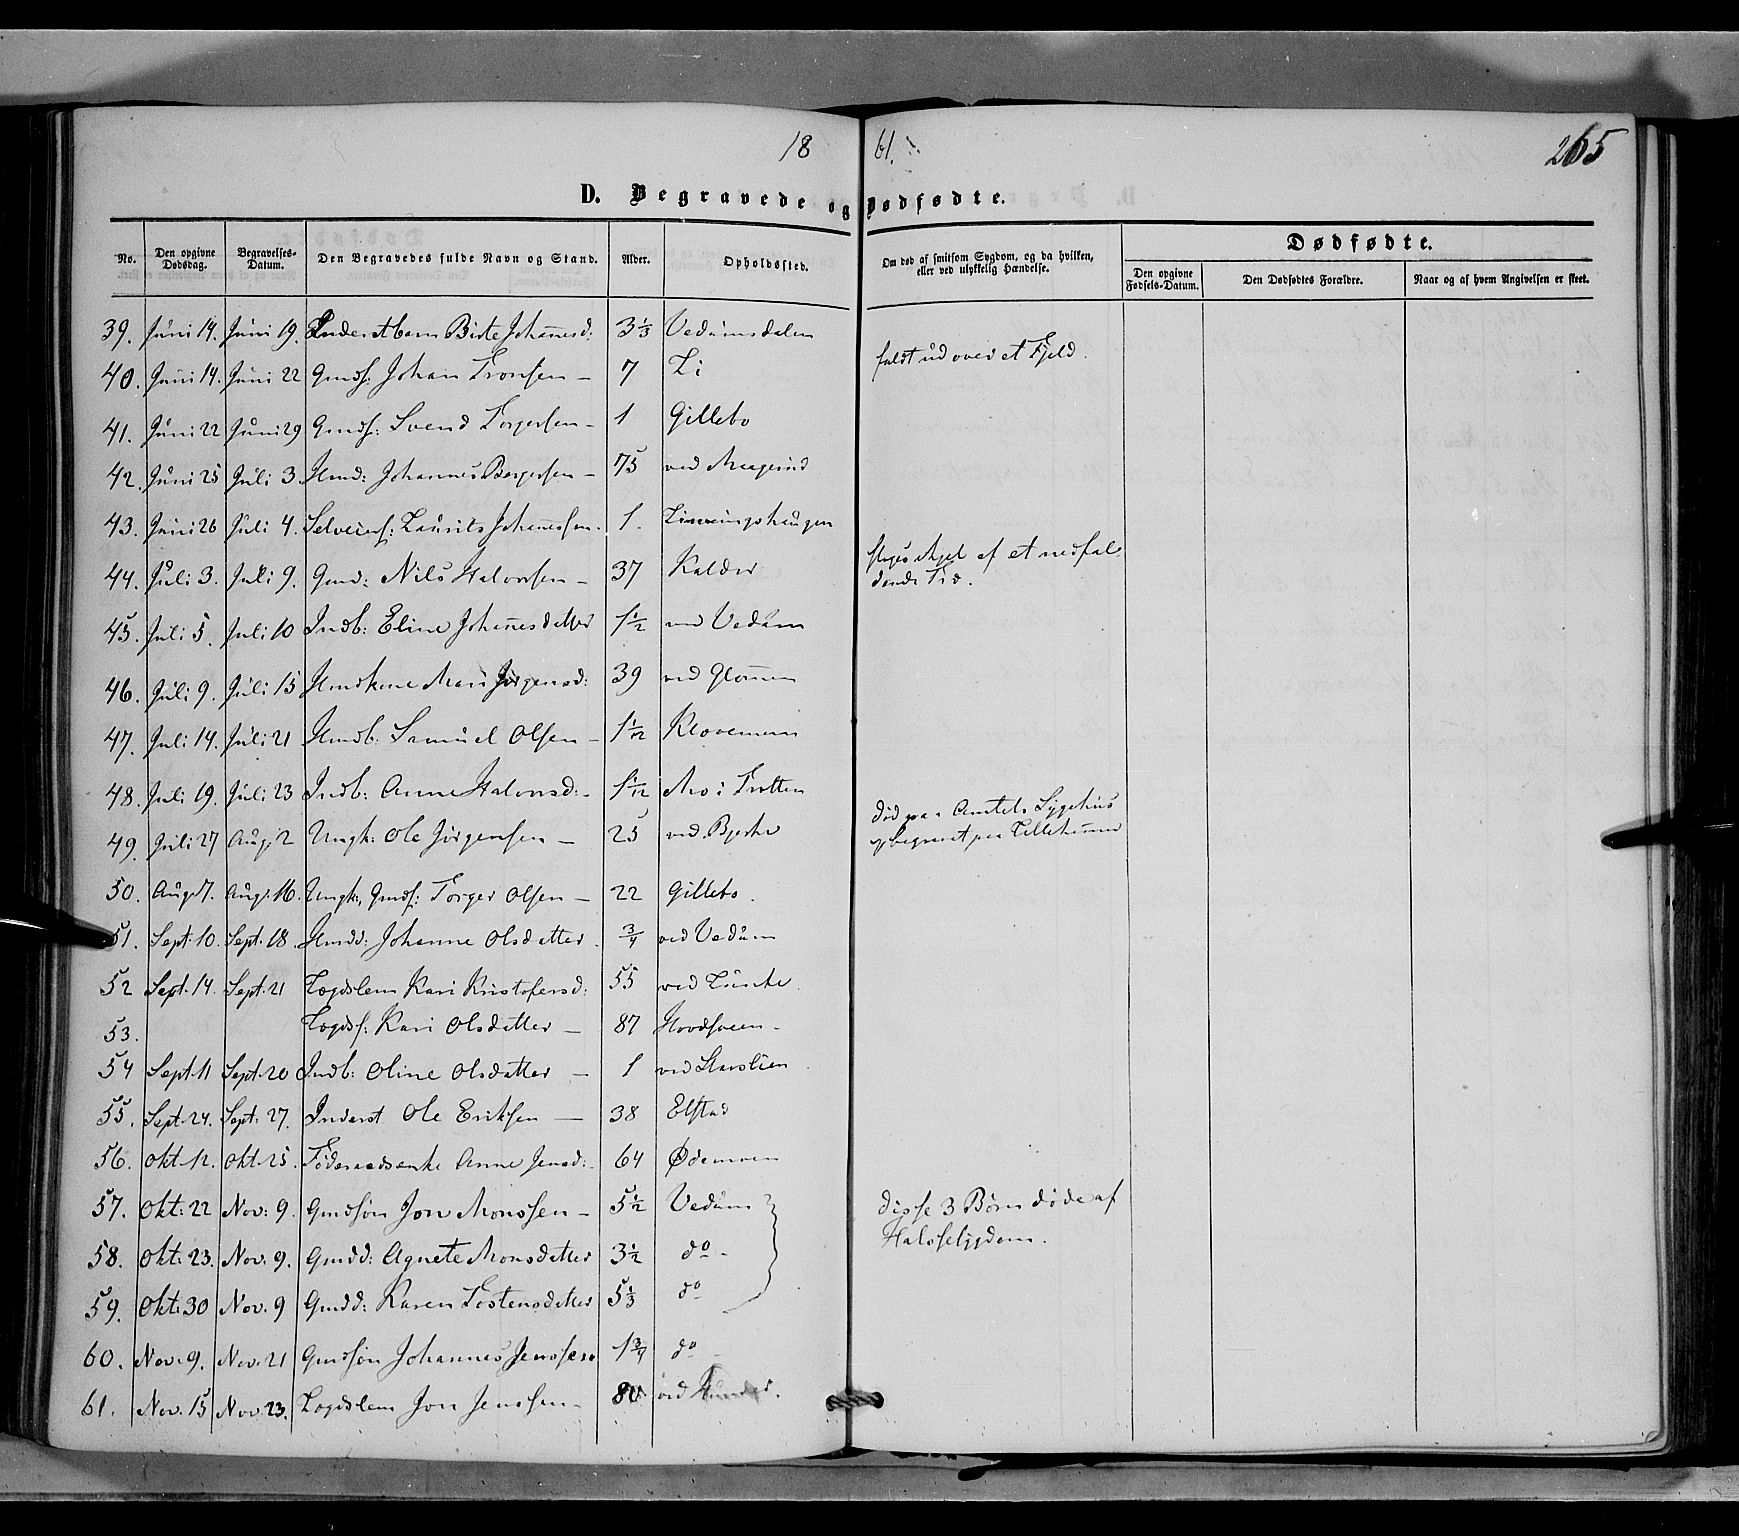 18 61.
265
D. Begravede og Dødfødte.
No. Den opgivne Dødsdag. Begravelses-Datum. Den Begravedes fulde Navn og Stand. Alder. Opholdssted. Om død af smitsom Sygdom, og da hvilken, eller ved ulykkelig Hændelse. Dødfødte.
Den opgivne Fødsels-Datum. Den Dødfødtes Forældre. Naar og af hvem Angivelsen er skeet.
39. Juni 14. Juni 19. Inderstbarn Birte Johannesd: 3 1/3 Vedumsdalen
40. Juni 14. Juni 22 Gmds: Johan Tronsen – 7 Li faldt ud over et Fjeld.
41. Juni 22 Juni 29 Gmds: Svend Torgersen – 1 Gillebo
42. Juni 25 Juli 3. Hmd: Johannes Borgersen – 75 ved
43. Juni 26 Juli 4. Selveiers: Laurits Johannessen. 1.
44. Juli 3. Juli 9. Gmd: Nils Halvorsen – 37 Kalder af et nedfal-
dende Træ.
45. Juli 5. Juli 10 Indb: Eline Johannesdatter 1 1/2 ved Vedum
46. Juli 9. Juli 15 Hmdkone Mari Jörgensd: 39 ved Glomen
47. Juli 14. Juli 21 Hmdb: Samuel Olsen – 1 1/12 Klovemoen
48. Juli 19. Juli 23 Indb: Anne Halvorsd: – 1 1/12 Mo i Trotten
49. Juli 27 Aug: 2 Ungk: Ole Jörgensen – 25 ved Bjerke död paa Amtets Sygehus
og begravet paa Lillehammer
50. Aug: 7. Aug: 16. Ungk:, Gmds: Torger Olsen – 22 Gillebo.
51. Sept: 10. Sept: 18. Hmdd: Johanne Olsdatter. 3/4 ved Vedum
52 Sept. 14. Sept. 21 Lægdslem Kari Kristofersd: 55 ved
53. Lægds: Kari Olsdatter – 87 Hovdsveen –
54 Sept. 11 Sept. 20 Indb: Oline Olsdatter – 1 ved
55. Sept. 24. Sept: 27. Inderst Ole Eriksen – 38 Elstad
56. Okt. 12. Okt. 25. Föderaadsenke Anne Jensd: – 64 Ödemoen
57. Okt: 22 Nov: 9. Gmdsön Jon Monssen – 5 1/2 Vedum disse 3 Börn döde af
Halssygdom.
58. Okt: 23. Nov: 9. Gmdd: Agnete Monsdatter 3 1/2 do –
59. Okt: 30 Nov. 9 Gmdd: Karen Tostensdatter 5 1/3 do
60. Nov. 9. Nov. 21 Gmdsön Johannes Jenssen 1 3/4 do –
61. Nov. 15 Nov. 23. Lægdslem Jon Jenssen – 80 ved